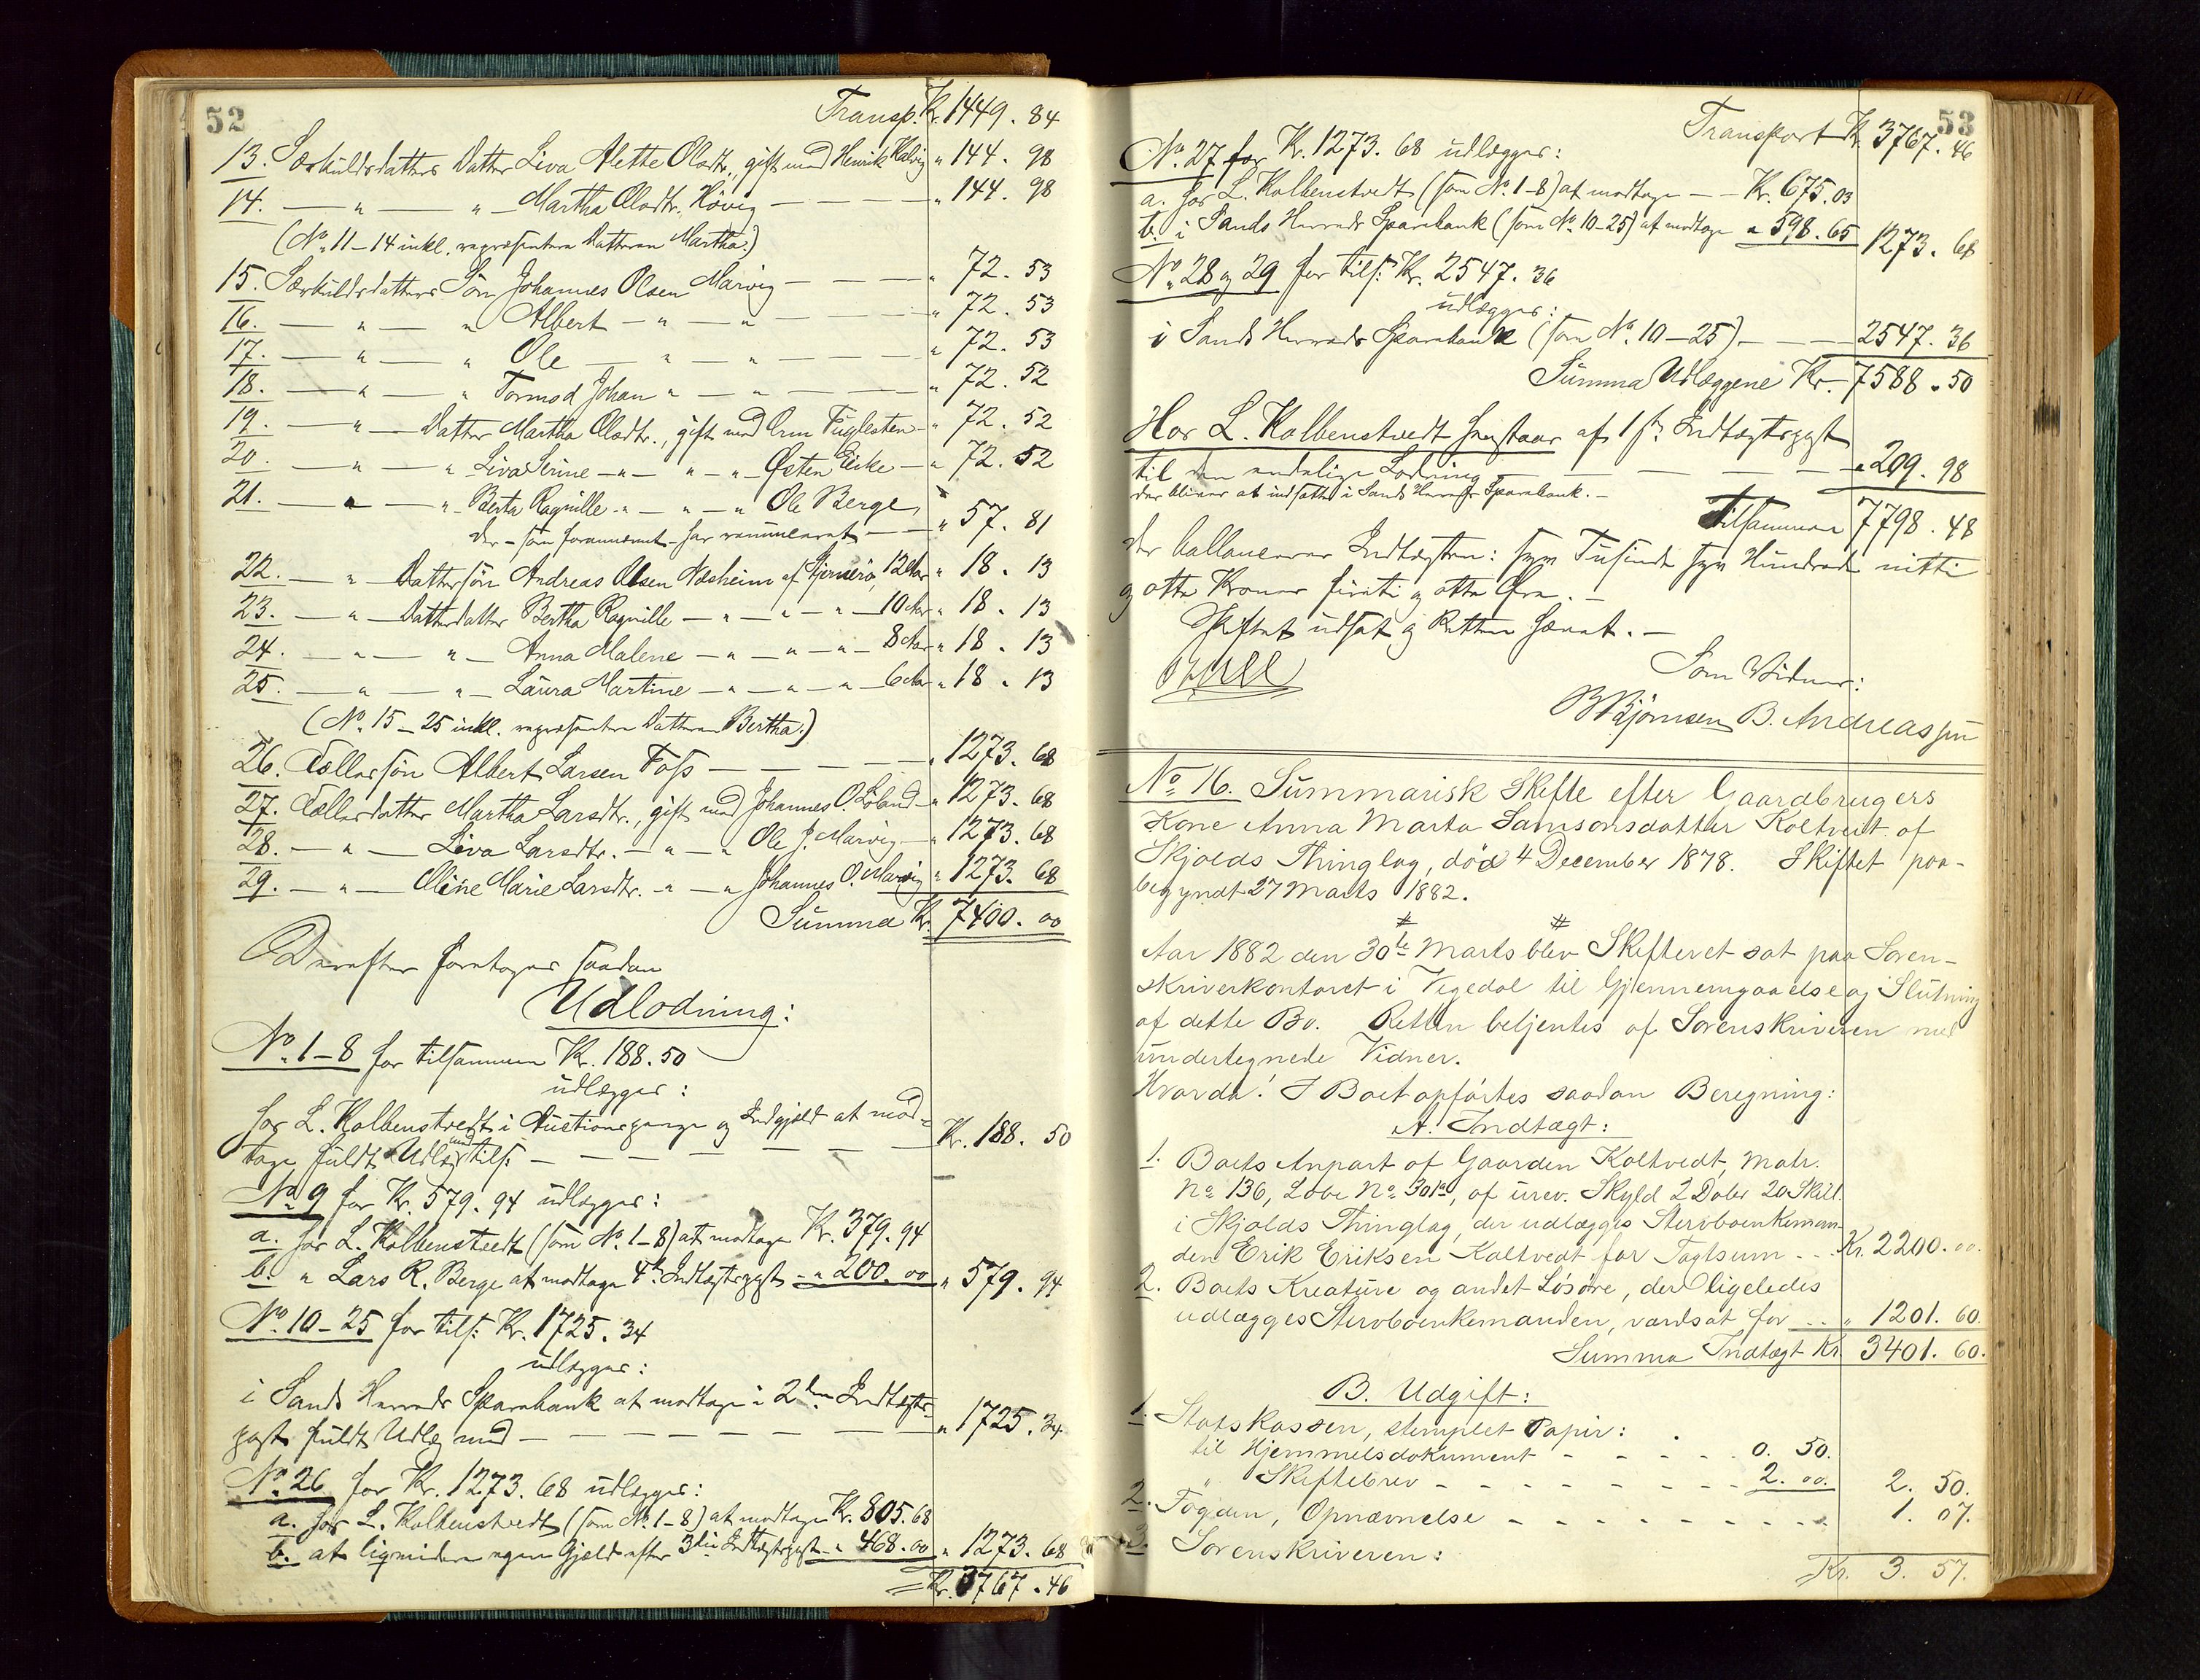 52
Transp. Kr. 1449. 84
13. Særkuldsdatters Datter Liva Alette Olsdtr., gift med Henrik Halvig " 144. 98
14. — " — " — Martha Olsdtr. Hövig — — — — " 144. 98
(No. 11–14 inkl. repræsentere Datteren Martha.)
15. Særkuldsdatters Sön Johannes Olsen Marvig — — — " 72. 53
16. — " — " Albert — " — " — — — " 72. 53
17. — " — " Ole — " — " — — " 72. 53
18. — " — " Tormod Johan " — " — — — " 72. 52
19. — " — Datter Martha Olsdtr., gift med Orm Fuglesten — " 72. 52
20. — " — " Liva Serine — " — " — " Östen Eike — " 72. 52
21. — " — " Berta Ragnille — " — " — " Ole Berge,
der – som forannævnt – har renunceret — — " 57. 81
22. — " — Dattersön Andreas Olsen Næsheim af Hjernerö, 12 Aar " 18. 13
23. — " — Datterdatter Bertha Ragnille — " — " — " — 10 Aar " 18. 13
24. — " — " — Anna Malene — " — " — " — 8 Aar " 18. 13
25. — " — " — Laura Martine — " — " — " — 6 Aar " 18. 13
(No. 15–25 inkl. repræsentere Datteren Bertha.)
26. Fællessön Albert Larsen Foss — — — — — " 1273. 68
27. Fællesdatter Martha Larsdtr., gift med Johannes O. Löland — " 1273. 68
28. — " — Liva Larsdtr. — " — " Ole J. Marvig — " 1273. 68
29. — " — Oline Marie Larsdtr. — " — " Johannes O. Marvig " 1273. 68
Summa Kr. 7400. 00
Derefter foretoges saadan
Udlodning:
No. 1–8 for tilsammen Kr. 188.50
udlægges:
hos L. Kolbenstvedt i Auctionspenge og Indgjæld at mod-
tage fuldt Udlæg med tils: — — — — — — Kr. 188. 50
No. 9 for Kr. 579. 94 udlægges:
a. hos L. Kolbenstvedt (som No. 1–8) at modtage Kr. 379. 94
b. " Lars R. Berge at modtage 4de Indtægtspost — " 200. 00 " 579. 94
No. 10–25 for tils: Kr. 1725. 34
udlægges:
i Sands Herreds Sparebank at modtage i 2den Indtægts-
post fuldt Udlæg med — — — — — — — " 1725. 34
No. 26 for Kr. 1273. 68 udlægges:
a. hos L. Kolbenstvedt (som No. 1–8) at modtage Kr. 805. 68
b. at liqvidere egen Gjæld efter 3die Indtægtspost — " 468. 00 " 1273. 68
Kr. 3767. 46
53
Transport Kr. 3767. 46
No. 27 for Kr. 1273. 68 udlægges:
a. hos L. Kolbenstvedt (som No. 1–8) at modtage — — Kr. 675. 03
b. i Sands Herreds Sparebank (som No. 10–25) at modtage " 598. 65 1273. 68
No. 28 og 29 for tils: Kr. 2547. 36
udlægges:
i Sands Herreds Sparebank (som No. 10–25) — — — 2547. 36
Summa Udlæggene Kr. 7588. 50
Hos L. Kolbenstvedt henstaar af 1ste Indtægtspost
til den endelige Lodning — — — — — " 209. 98
der bliver at indsætte i Sands Herreds Sparebank. —
Tilsammen 7798. 48
der ballancerer Indtægten: syv Tusinde syv Hundrede nitti
og otte Kroner firti og otte Øre. —
Skiftet udsat og Retten hævet. —
Som Vidner:
B. Björnsen B. Andreassen
No. 16. Summarisk Skifte efter Gaardbrugers
Kone Anna Marta Samsonsdatter Koltveit af
Skjolds Thinglag, död 4 December 1878. Skiftet paa-
begyndt 27 Marts 1882.
Aar 1882 den 30te Marts blev Skifteret sat paa Soren-
skriverkontoret i Vigedal til Gjennemgaaelse og Slutning
af dette Bo. Retten betjentes af Sorenskriveren med
undertegnede Vidner.
Hvorda! I Boet opförtes saadan Beregning:
A. Indtægt:
1. Boets Anpart af Gaarden Koltvedt, Matr.
No. 136, Löbe No. 301a, af urev. Skyld 2 Daler 20 Skill.
i Skjolds Thinglag, der udlægges Stervboenkeman-
den Erik Eriksen Koltvedt for Taxtsum . . . Kr. 2200. 00.
2. Boets Kreature og andet Lösöre, der ligeledes
udlægges Stervboenkemanden, værdsat for . . . " 1201. 60.
Summa Indtægt Kr. 3401. 60.
B. Udgift:
1. Statskassen, stemplet Papir:
til Hjemmelsdokument - - - - - 0. 50.
" Skiftebrev - - - - - - - - 2. 00. 2. 50.
2. Fogden, Opnævnelse - - - - - - - - - 1. 07.
3. Sorenskriveren:
Kr. 3. 57.